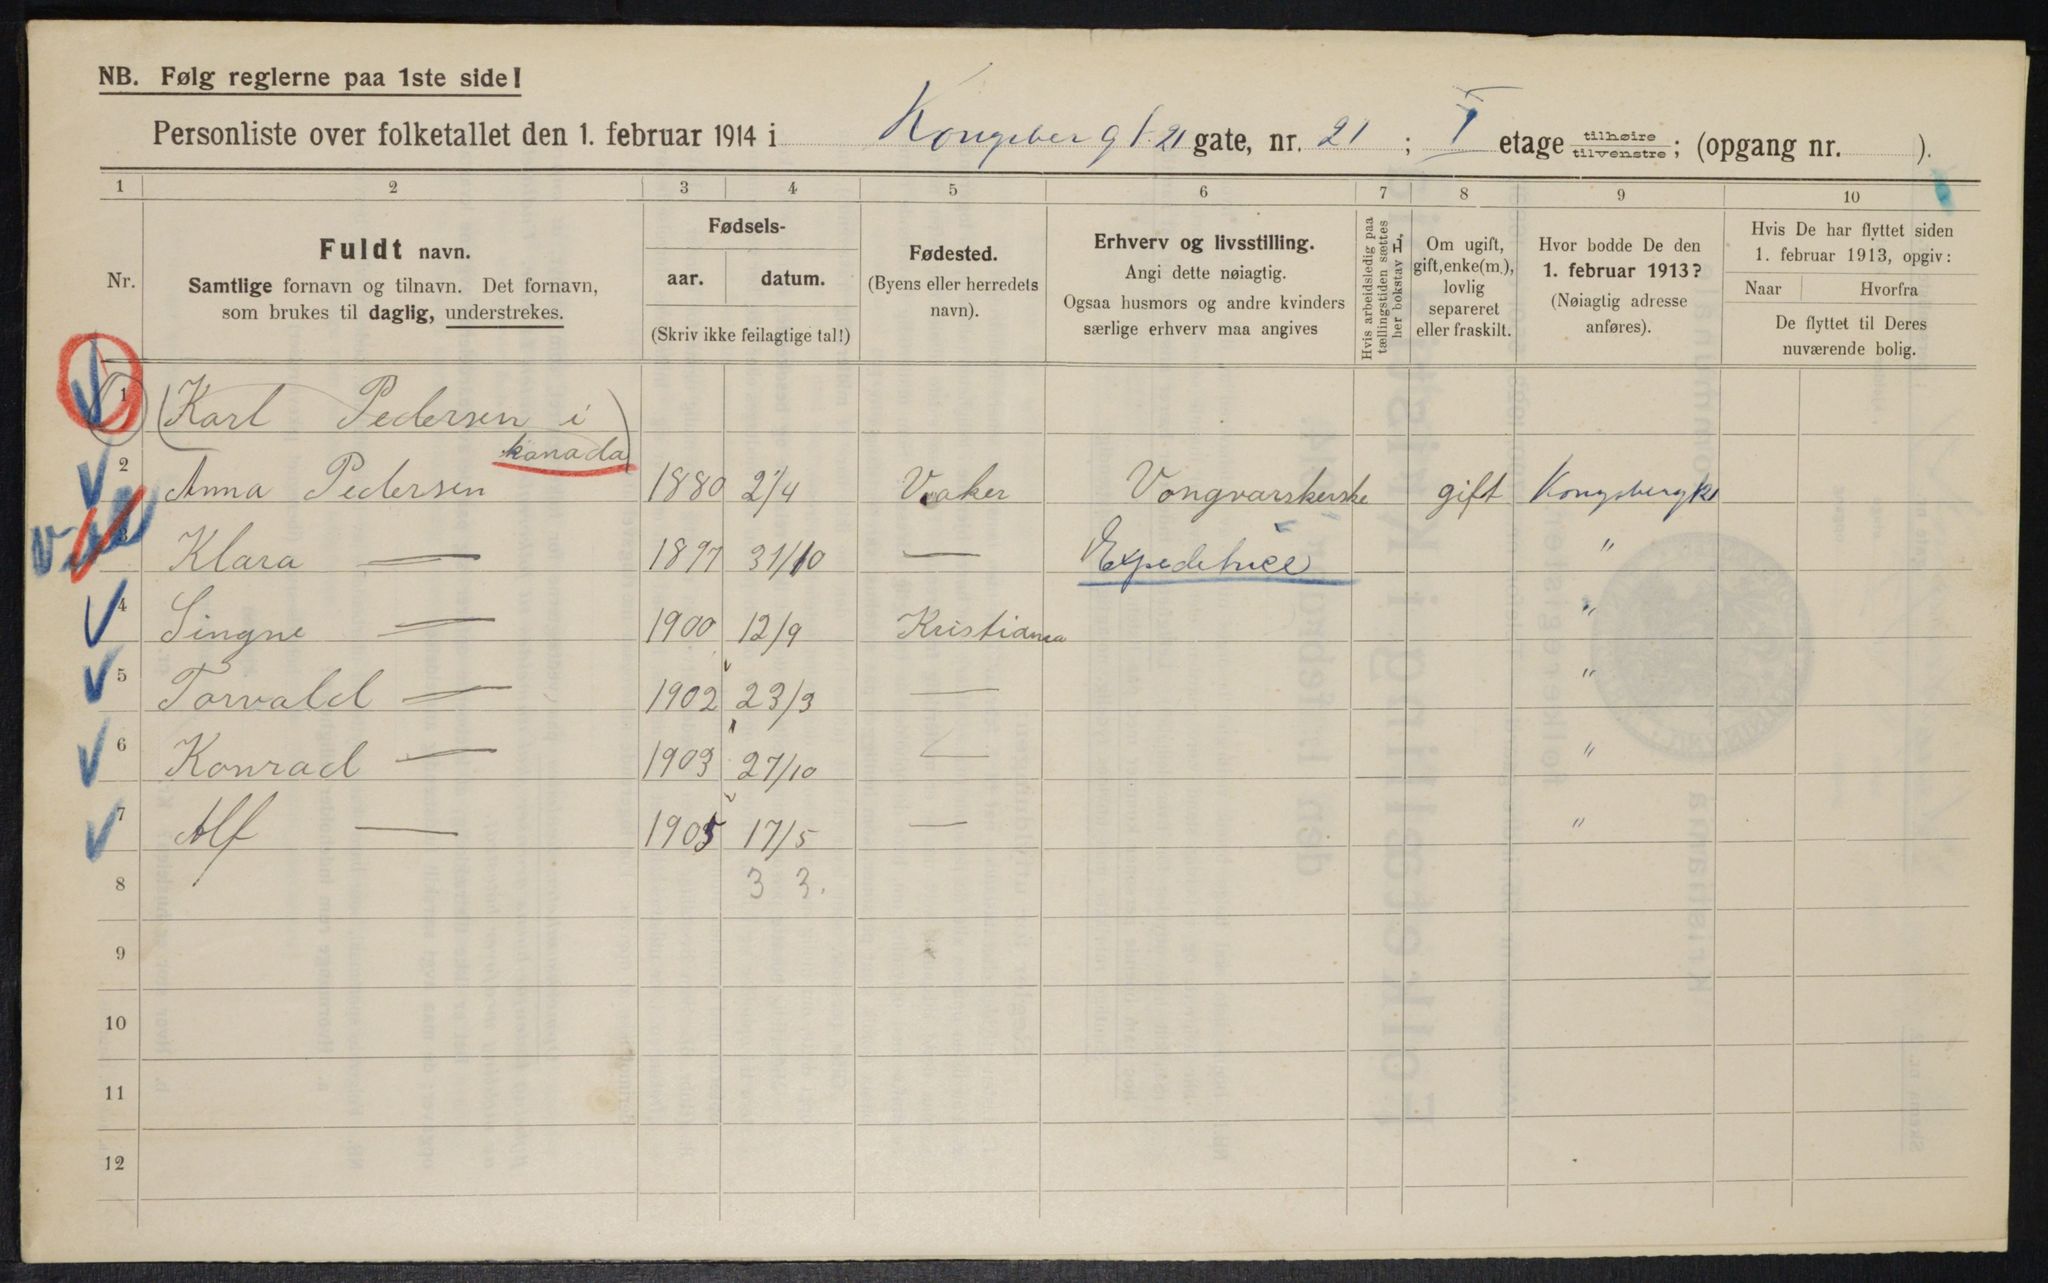 NB. Følg reglerne paa 1ste side!
Personliste over folketallet den 1. februar 1914 i Kongsberg gate, nr. 21 ; I etage tilhøire tilvenstre ; (opgang nr. ).
1 2 3 4 5 6 7 8 9 10
Nr.
Fuldt navn.
Samtlige fornavn og tilnavn. Det fornavn,
som brukes til daglig, understrekes.
Fødsels-
aar. datum.
(Skriv ikke feilagtige tal!)
Fødested.
(Byens eller herredets
navn).
Erhverv og livsstilling.
Angi dette nøiagtig.
Ogsaa husmors og andre kvinders
særlige erhverv maa angives
Hvis arbeidsledig paa
tællingstiden sættes
her bokstav L.
Om ugift,
gift, enke(m.),
lovlig
separeret
eller fraskilt.
Hvor bodde De den
1. februar 1913?
(Nøiagtig adresse
anføres).
Hvis De har flyttet siden
1. februar 1913, opgiv:
Naar Hvorfra
De flyttet til Deres
nuværende bolig.
1 (Karl Pedersen i
kanada)
2 Anna Pedersen 1880 2/4 Vaker Vongvarskerske gift Kongsberg 21
3 Klara — 1897 31/10 — Expeditrice "
4 Singne — 1900 12/9 Kristiania "
5 Torvald — 1902 23/3 — "
6 Konrad — 1903 27/10 — "
7 Alf — 1905 17/5 — "
8 3 3.
9
10
11
12